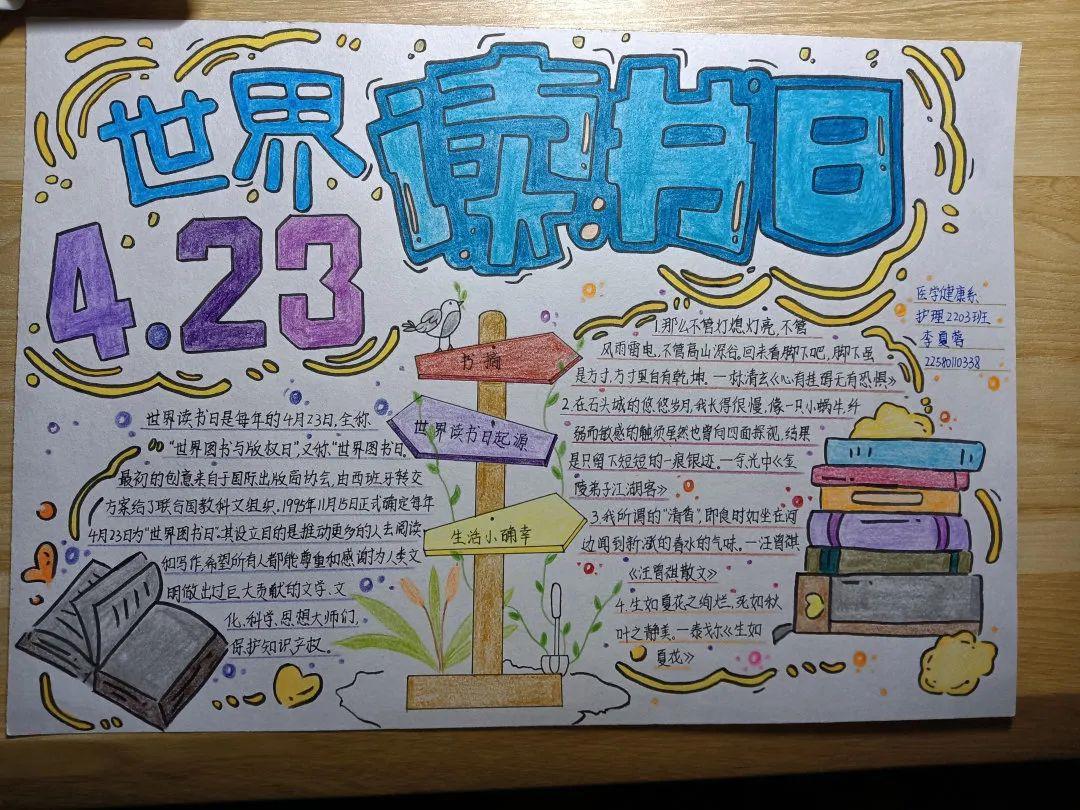 世界
读书日
4.23
医学健康系
护理2203班
李夏蓉
22580110338
书摘
世界读书日起源
生活小确幸
世界读书日是每年的4月23日,全称
“世界图书与版权日”,又称“世界图书日”
最初的创意来自于国际出版商协会,由西班牙转交
方案给了联合国教科文组织,1995年11月15日正式确定每年
4月23日为“世界图书日”.其设立目的是推动更多的人去阅读
和写作,希望所有人都能尊重和感谢为人类文
明做出过巨大贡献的文学、文
化、科学、思想大师们,
保护知识产权。
1.那么不管灯熄灯亮,不管
风雨雷电,不管高山深谷,回来看脚下吧,脚下虽
是方寸,方寸里自有乾坤。一林清玄《心有挂碍无有恐惧》
2.在石头城的悠悠岁月,我长得很慢,像一只小蜗牛,纤
弱而敏感的触须虽然也曾向四面探视,结果
是只留下短短的一痕银迹。一余光中《金
陵弟子江湖客》
3.我所谓的“清香”,即良时如坐在河
边闻到新涨的春水的气味。一汪曾祺
《汪曾祺散文》
4.生如夏花之绚烂,死如秋
叶之静美。一泰戈尔《生如
夏花》